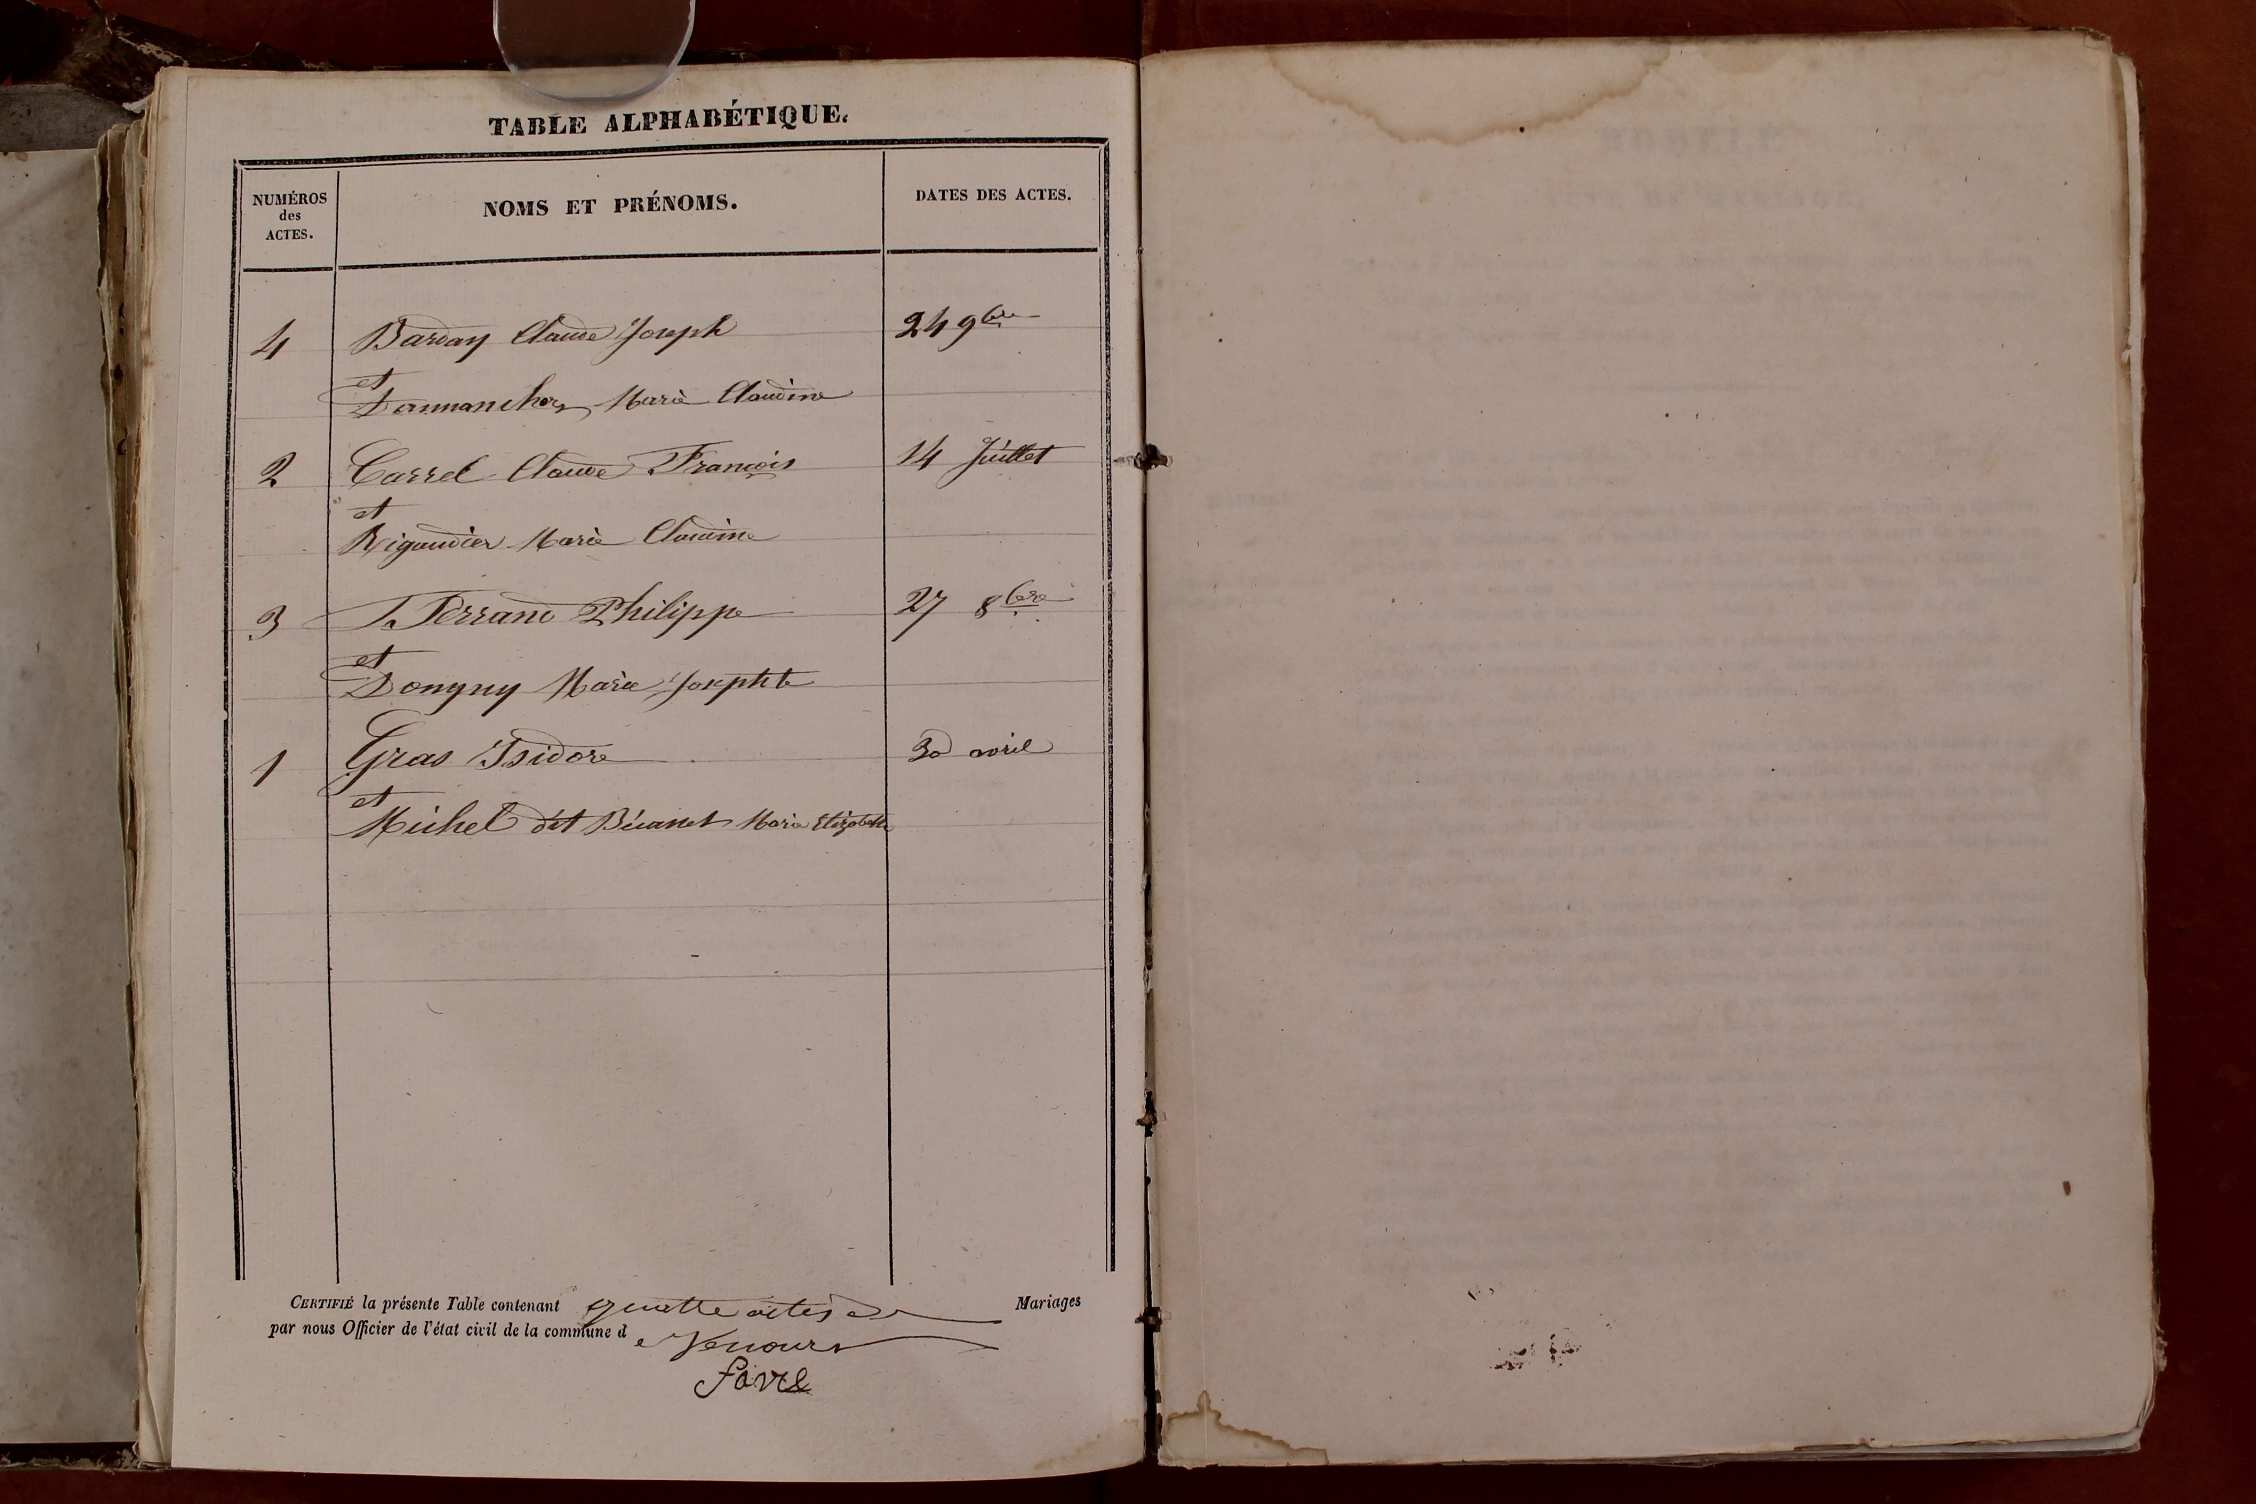 TABLE ALPHABÉTIQUE.
NUMÉROS
des
ACTES.
NOMS ET PRÉNOMS.
DATES DES ACTES.
4 Barday Claude Joseph 24 9bre
et
Marie Claudine
2 Carrel Claude François 14 Juillet
et
Rigaudier Marie Claudine
3 Ferrand Philippe 27 8bre
et
Dongny Marie Josephte
1 Gras Isidore 30 avril
et
Michel dit Bécanet Marie Elizabeth
CERTIFIÉ la présente Table contenant quatre actes de Mariages
par nous Officier de l'état civil de la commune d
Favre